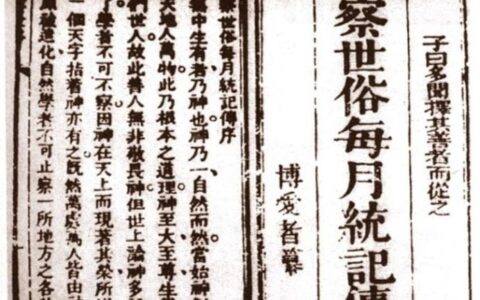 子曰多聞擇其善者而從之
察世俗每月統記傳
博愛者纂
察世俗每月統記傳序
無中生有者乃神也神乃一自然而然當始神
天地人萬物此乃根本之道理神至大至尊生
們世人故此善人無非敬畏神但世上論神多
了學者不可不察因神在天上而現著其榮所
一個天字指着神亦有之既然萬處萬人皆由神
原被造化自然學者不可止察一所地方之各